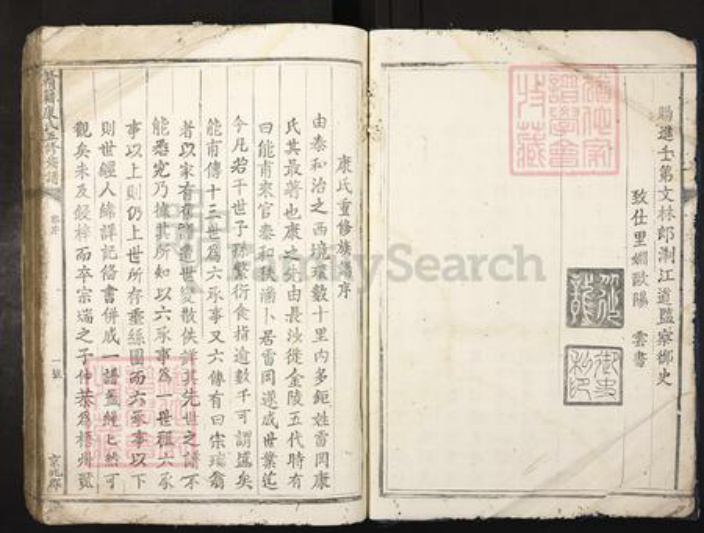 賜進士第文林郎浙江道監察御史
致仕里姻歐陽 雲書
御史
私印
康氏重修族譜序
由泰和治之西境環數十里內多鉅姓雷岡康
氏其最著也康之先由長沙徙金陵五代時有
曰能甫來官泰和秩滿卜居雷岡遂成世業迄
今凡若干世子孫繁衍食指逾數千可謂盛矣
能甫傳十三世爲六承事又六傳有曰宗瑞翁
者以家有舊譜遭世變散佚詳其先世之譜不
能悉究乃據其所知以六承事爲一世祖六承
事以上則仍上世所存垂絲圖而六承事以下
則世經人緯詳記俻書併成一譜盖繩繩然可
觀矣未及鋟梓而卒宗瑞之子仲恭爲梧州
康氏五修族譜
一號
京兆郡
MySearch